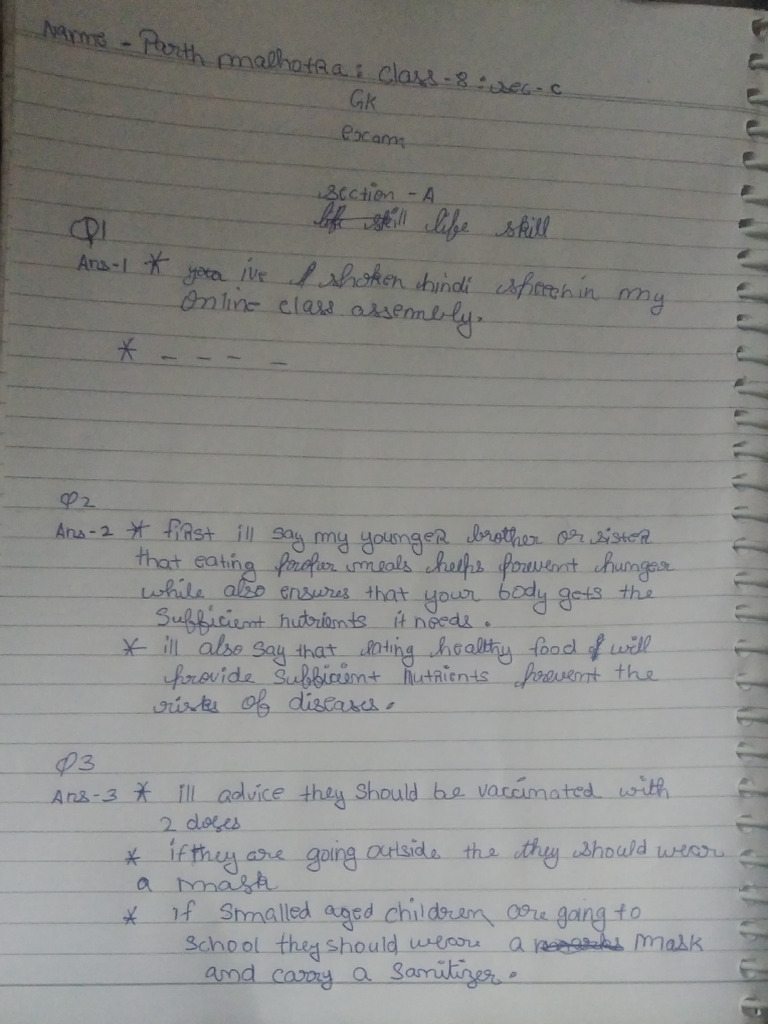 Name - Parth malhotra : class - 8 : sec - c
GK
exam
Section - A
life skill life skill
Q1
Ans-1 * ive spoken hindi speech in my
Online class assembly.
* - - - -
Q2
Ans-2 * first ill say my younger brother or sister
that eating proper meals helps prevent hunger
while also ensures that your body gets the
Sufficient nutrients it needs.
* ill also say that eating healthy food will
provide sufficient nutrients prevent the
risks of diseases.
Q3
Ans-3 * ill advice they should be vaccinated with
2 doses
* if they are going outside the they should wear
a mask
* if Smalled aged children are going to
School they should wear a mask
and carry a Sanitizer.